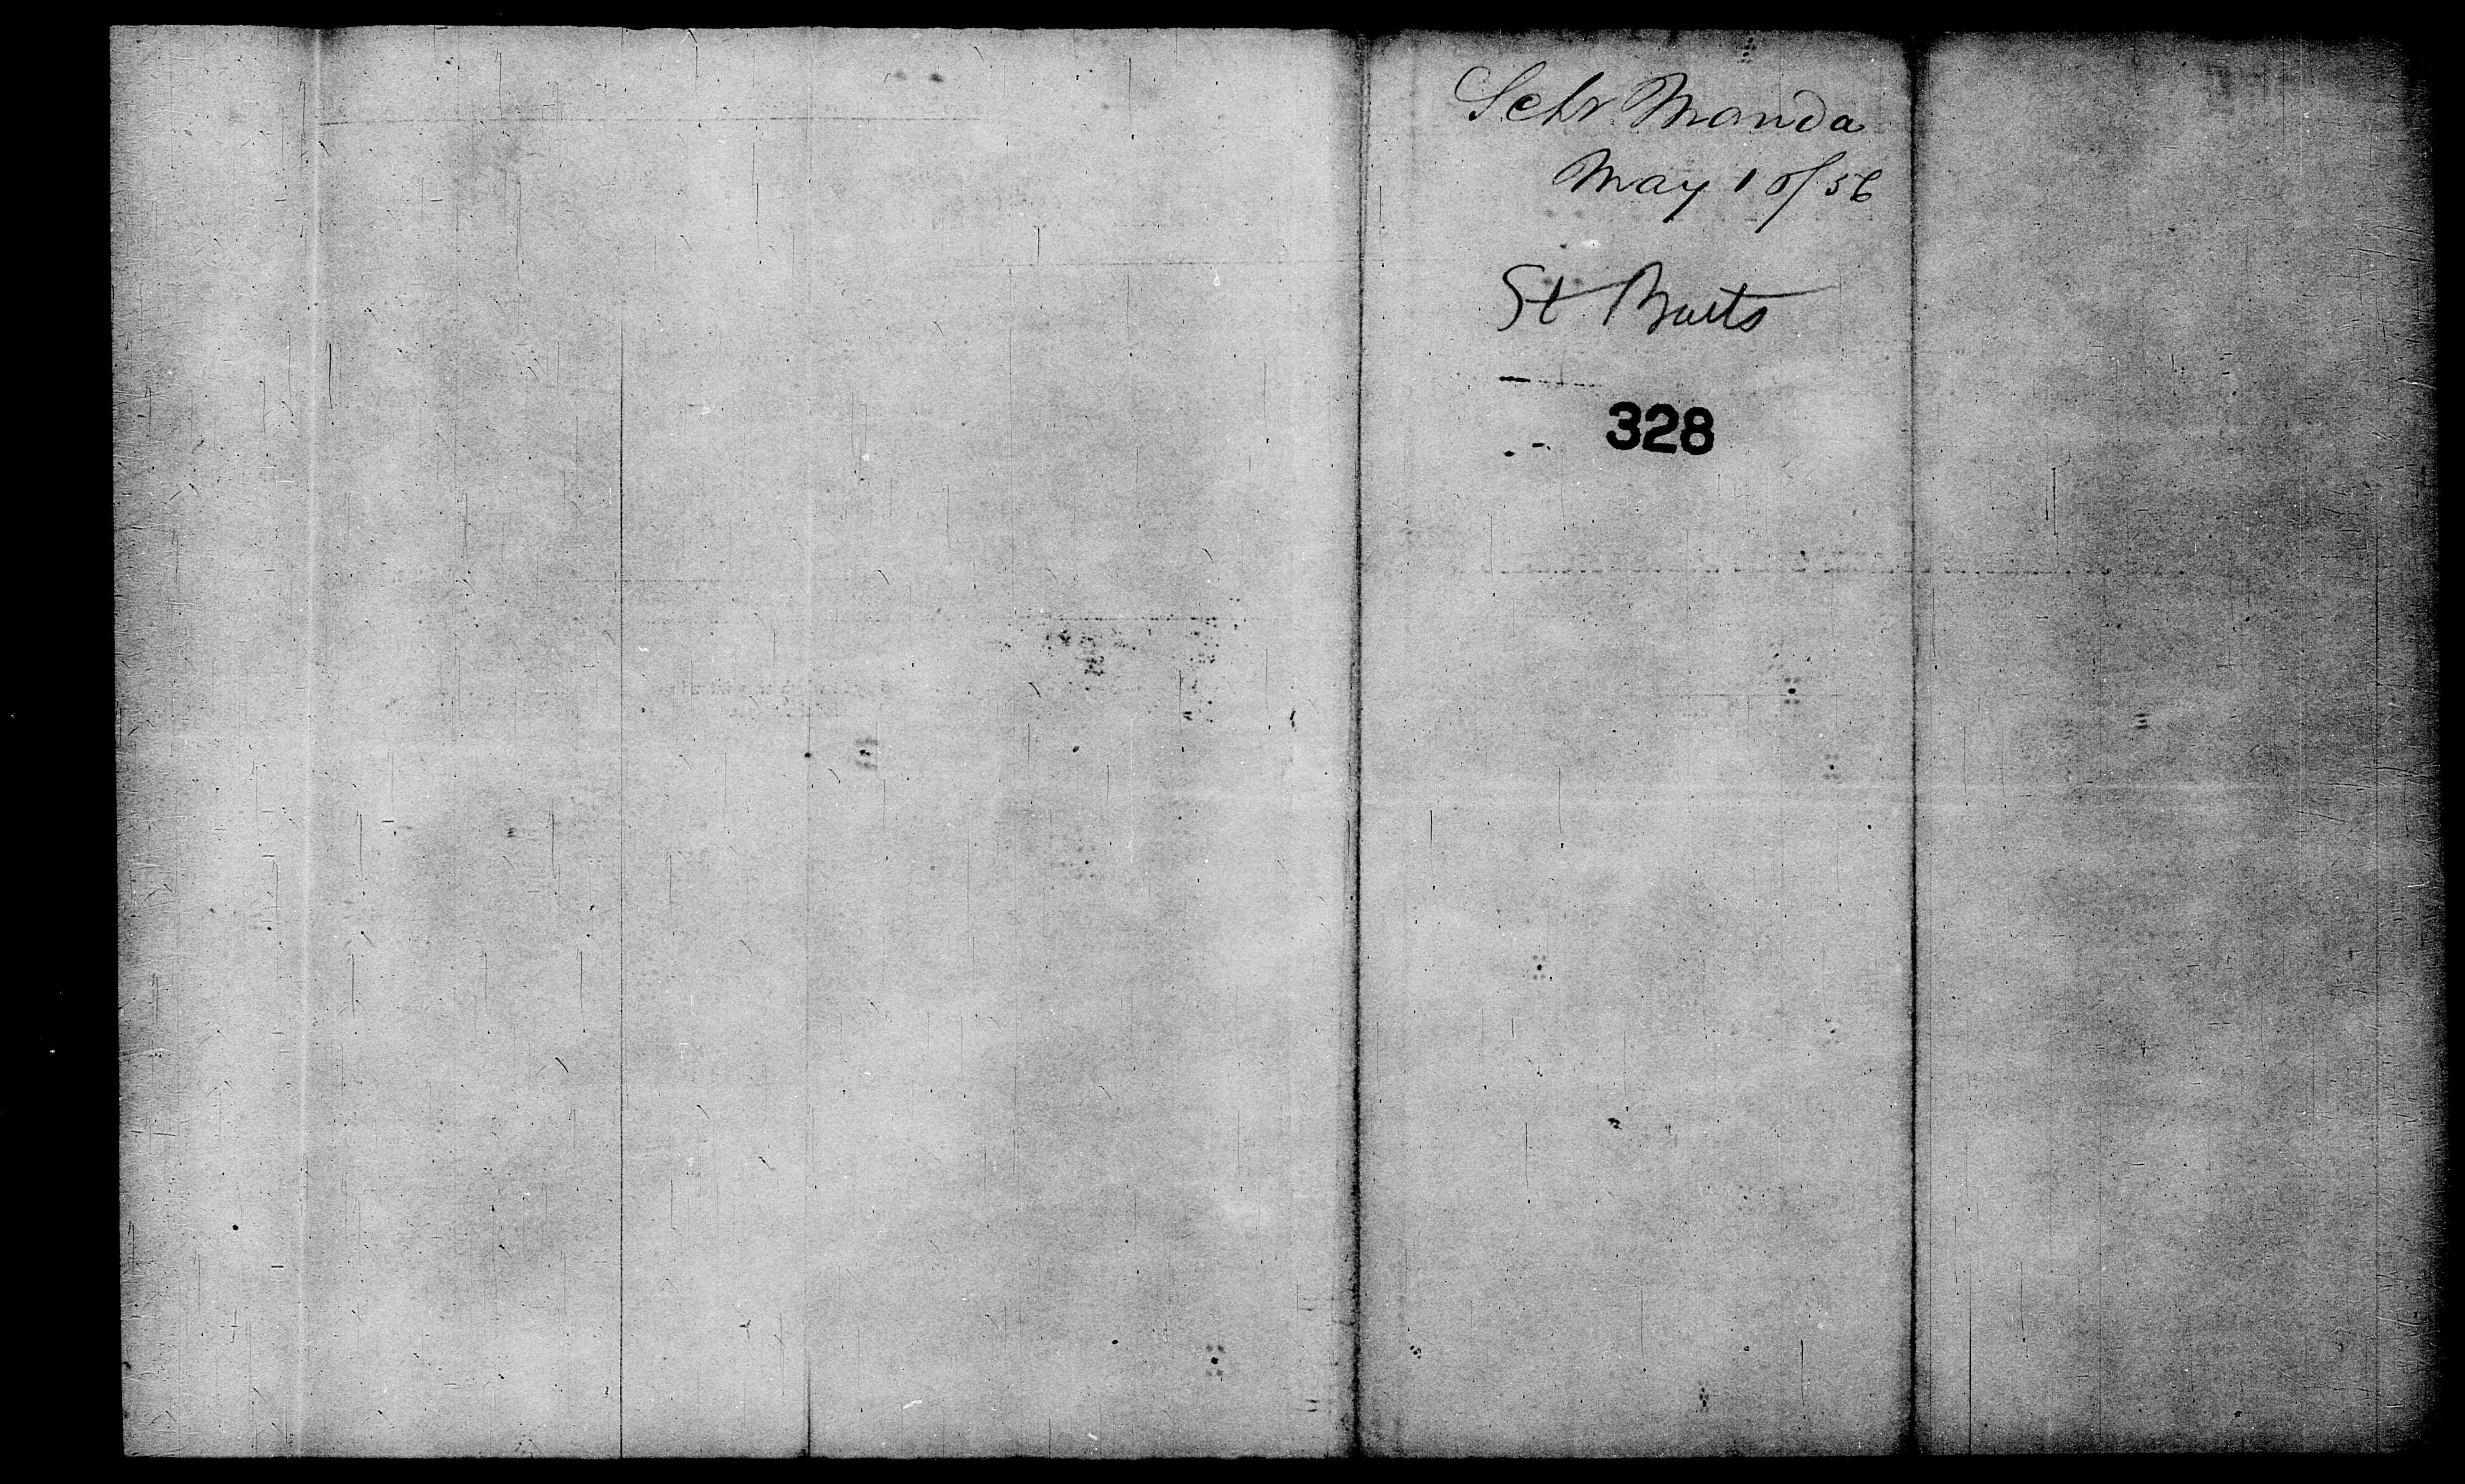 Schr Manda
May 1 of 56
St Barts
328